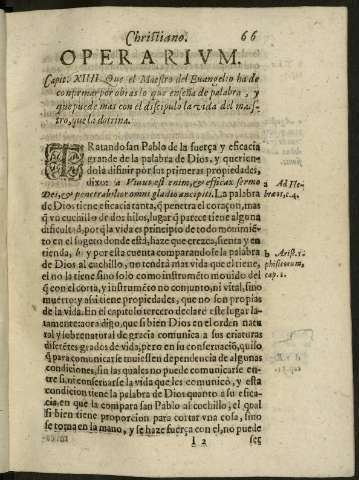 Christiano. 66
OPERARIVM.
Capit. XIIII. Que el Maestro del Euangelio ha de
confirmar por obras lo que enseña de palabra, y
que puede mas con el discipulo la vida del maes-
tro, que la dotrina.
TRatando san Pablo de la fuerça y eficacia
grande de la palabra de Dios, y querien-
dola difinir por sus primeras propiedades,
dixo: a Viuus est enim, & efficax sermo
Dei, & penetrabilior omni gladio ancipiti. La palabra
de Dios tiene eficacia tanta, q̃ penetra el coraçon, mas
q̃ vn cuchillo de dos hilos, lugar q̃ parece tiene alguna
dificultad, porq̃ la vida es principio de todo mouimiẽ-
to en el sugeto donde está, haze que crezca, sienta y en
tienda, b y por esta cuenta comparandose la palabra
de Dios al cuchillo, no tendrá mas vida que el tiene,
el no la tiene sino solo como instrumẽto mouido del
q̃ con el corta, y instrumẽto no conjunto, ni vital, sino
muerto: y assi tiene propiedades, que no son propias
de la vida. En el capitulo tercero declaré este lugar la-
tamente: aora digo, que si bien Dios en el orden natu
ral y sobrenatural de gracia comunica a sus criaturas
diferẽtes grados de vida, pero en su conseruaciõ, quiso
q̃ para comunicarse tuuiessen dependencia de algunas
condiciones, sin las quales no puede comunicarse en-
tre si, ni conseruarse la vida que les comunicó, y esta
condicion tiene la palabra de Dios quanto a su efica-
cia, en que la compara san Pablo al cochillo, el qual
si bien tiene proporcion para cortar vna cosa, sino
se toma en la mano, y se haze fuerça con el, no puede
I 2 ser
a Ad He-
bræos, c. 4.
b Arist. 1.
phisicorum,
cap. 1.